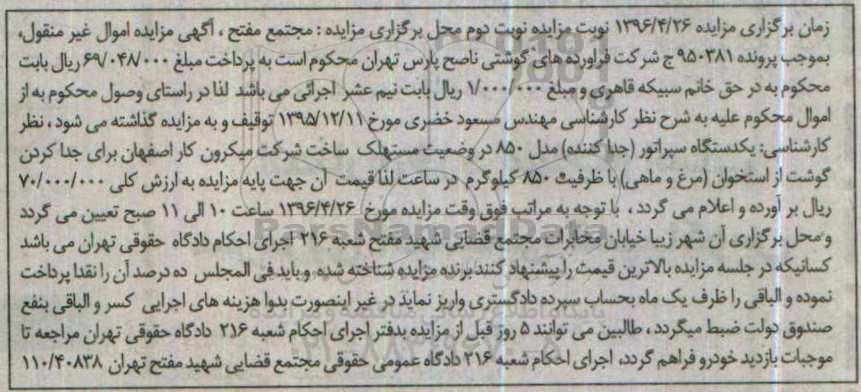 زمان برگزاری مزایده ۱۳۹۶/۴/۲۶ نوبت مزایده نوبت دوم محل برگزاری مزایده : مجتمع مفتح ، آگهی مزایده اموال غیر منقول،
بموجب پرونده ۹۵۰۳۸۱ ج شرکت فراورده های گوشتی ناصح پارس تهران محکوم است به پرداخت مبلغ ۶۹/۰۴۸/۰۰۰ ریال بابت
محکوم به در حق خانم سبیکه قاهری و مبلغ ۱/۰۰۰/۰۰۰ ریال بابت نیم عشر اجرائی می باشد لذا در راستای وصول محکوم به از
اموال محکوم علیه به شرح نظر کارشناسی مهندس مسعود خضری مورخ ۱۳۹۵/۱۲/۱۱ توقیف و به مزایده گذاشته می شود ، نظر
کارشناسی: یکدستگاه سپراتور (جدا کننده) مدل ۸۵۰ در وضعیت مستهلک ساخت شرکت میکرون کار اصفهان برای جدا کردن
گوشت از استخوان (مرغ و ماهی) با ظرفیت ۸۵۰ کیلوگرم در ساعت لذا قیمت آن جهت پایه مزایده به ارزش کلی ۷۰/۰۰۰/۰۰۰
ریال بر آورده و اعلام می گردد ، با توجه به مراتب فوق وقت مزایده مورخ ۱۳۹۶/۴/۲۶ ساعت ۱۰ الی ۱۱ صبح تعیین می گردد
و محل برگزاری آن شهر زیبا خیابان مخابرات مجتمع قضایی شهید مفتح شعبه ۲۱۶ اجرای احکام دادگاه حقوقی تهران می باشد
کسانیکه در جلسه مزایده بالاترین قیمت را پیشنهاد کنند برنده مزایده شناخته شده و باید فی المجلس ده درصد آن را نقدا پرداخت
نموده و الباقی را ظرف یک ماه بحساب سپرده دادگستری واریز نماید در غیر اینصورت بدوا هزینه های اجرایی کسر و الباقی بنفع
صندوق دولت ضبط میگردد ، طالبین می توانند ۵ روز قبل از مزایده بدفتر اجرای احکام شعبه ۲۱۶ دادگاه حقوقی تهران مراجعه تا
موجبات بازدید خودرو فراهم گردد، اجرای احکام شعبه ۲۱۶ دادگاه عمومی حقوقی مجتمع قضایی شهید مفتح تهران ۱۱۰/۴۰۸۳۸
ParsNamadData